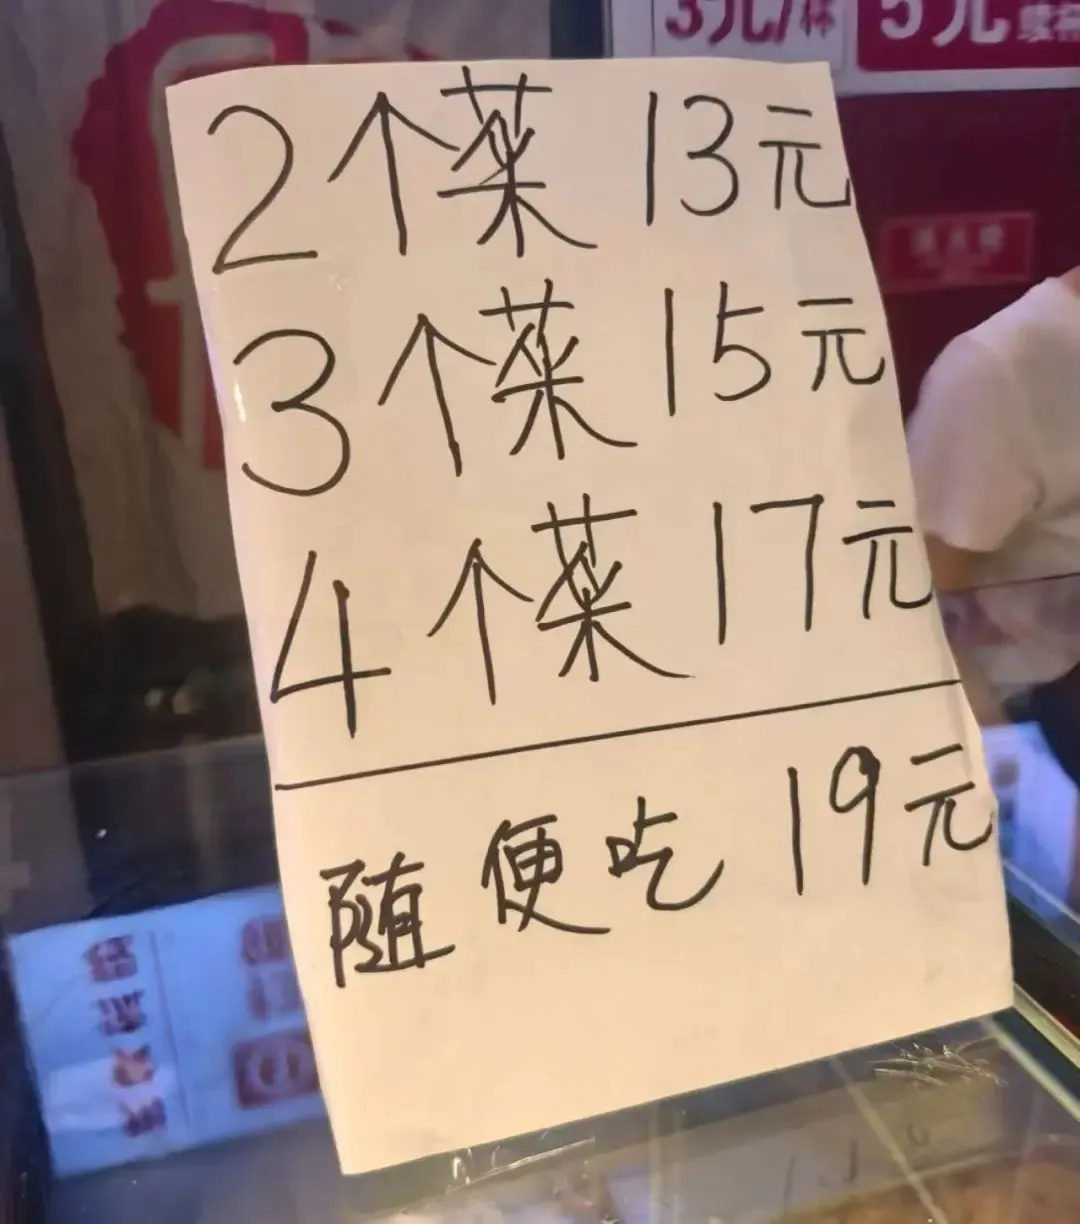 3元/杯
5元
2个菜 13元
3个菜 15元
4个菜 17元
随便吃 19元